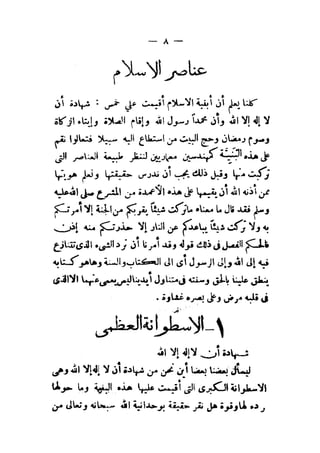 — ٨ —
عناصر الاسلام
كلنا يعلم أن أبنية الاسلام أقيمت على خمس : شهادة أن
لا إله إلا الله وأن محمداً رسول الله وإقام الصلاة وإيتاء الزكاة
وصوم رمضان وحج البيت من استطاع اليه سبيلا فتعالوا نقم
على هذه البنية كمهندسين معماريين لننظر طبيعة العناصر التى
تركبت منها وقبل ذلك يجب أن ندرس حقيقتها ونعلم هويتها
من أذنه الله أن يقيمها على هذه الأعمدة من المشرع صلى الله عليه
وسلم فقد قال ما معناه ماتركت شيئاً يقربكم من الجنة إلا أمرتكم
به ولا تركت شيئاً يباعدكم عن النار إلا حذرتكم منه إذن
فالحكم الفصل فى ذلك قوله وقد أمرنا أن نرد الشىء الذى نتنازع
فيه إلى الله وإلى الرسول أى الى الكتاب والسنة وهاهو كتابه
ينطق علينا بالحق وسنته فى متناول أيدينا ليس يعمى عنهما الا الذى
فى قلبه مرض وعلى بصره غشاوة .
١ – الاسطوانة العظمى
شهادة أن لا إله إلا الله
ليسأل بعضنا بعضا أين نحن من شهادة أن لا إله إلا الله وهى
الاسطوانة الكبرى التى أقيمت عليها هذه البنية وما حولها
ردء لها وقوة هل نقر حقيقة بوحدانية الله سبحانه وتعالى من